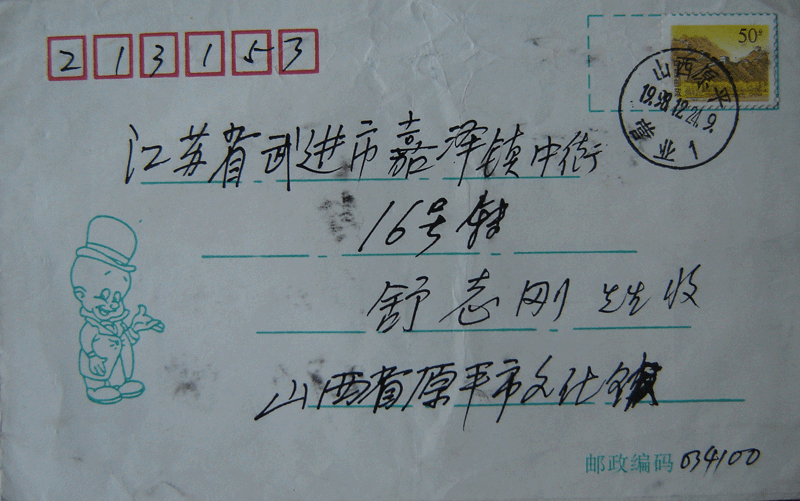 213153
50分
山西原平
1998.12.24.9.
江苏省武进市嘉泽镇中街
16号
舒志刚 先生 收
山西省原平市文化
邮政编码 034100